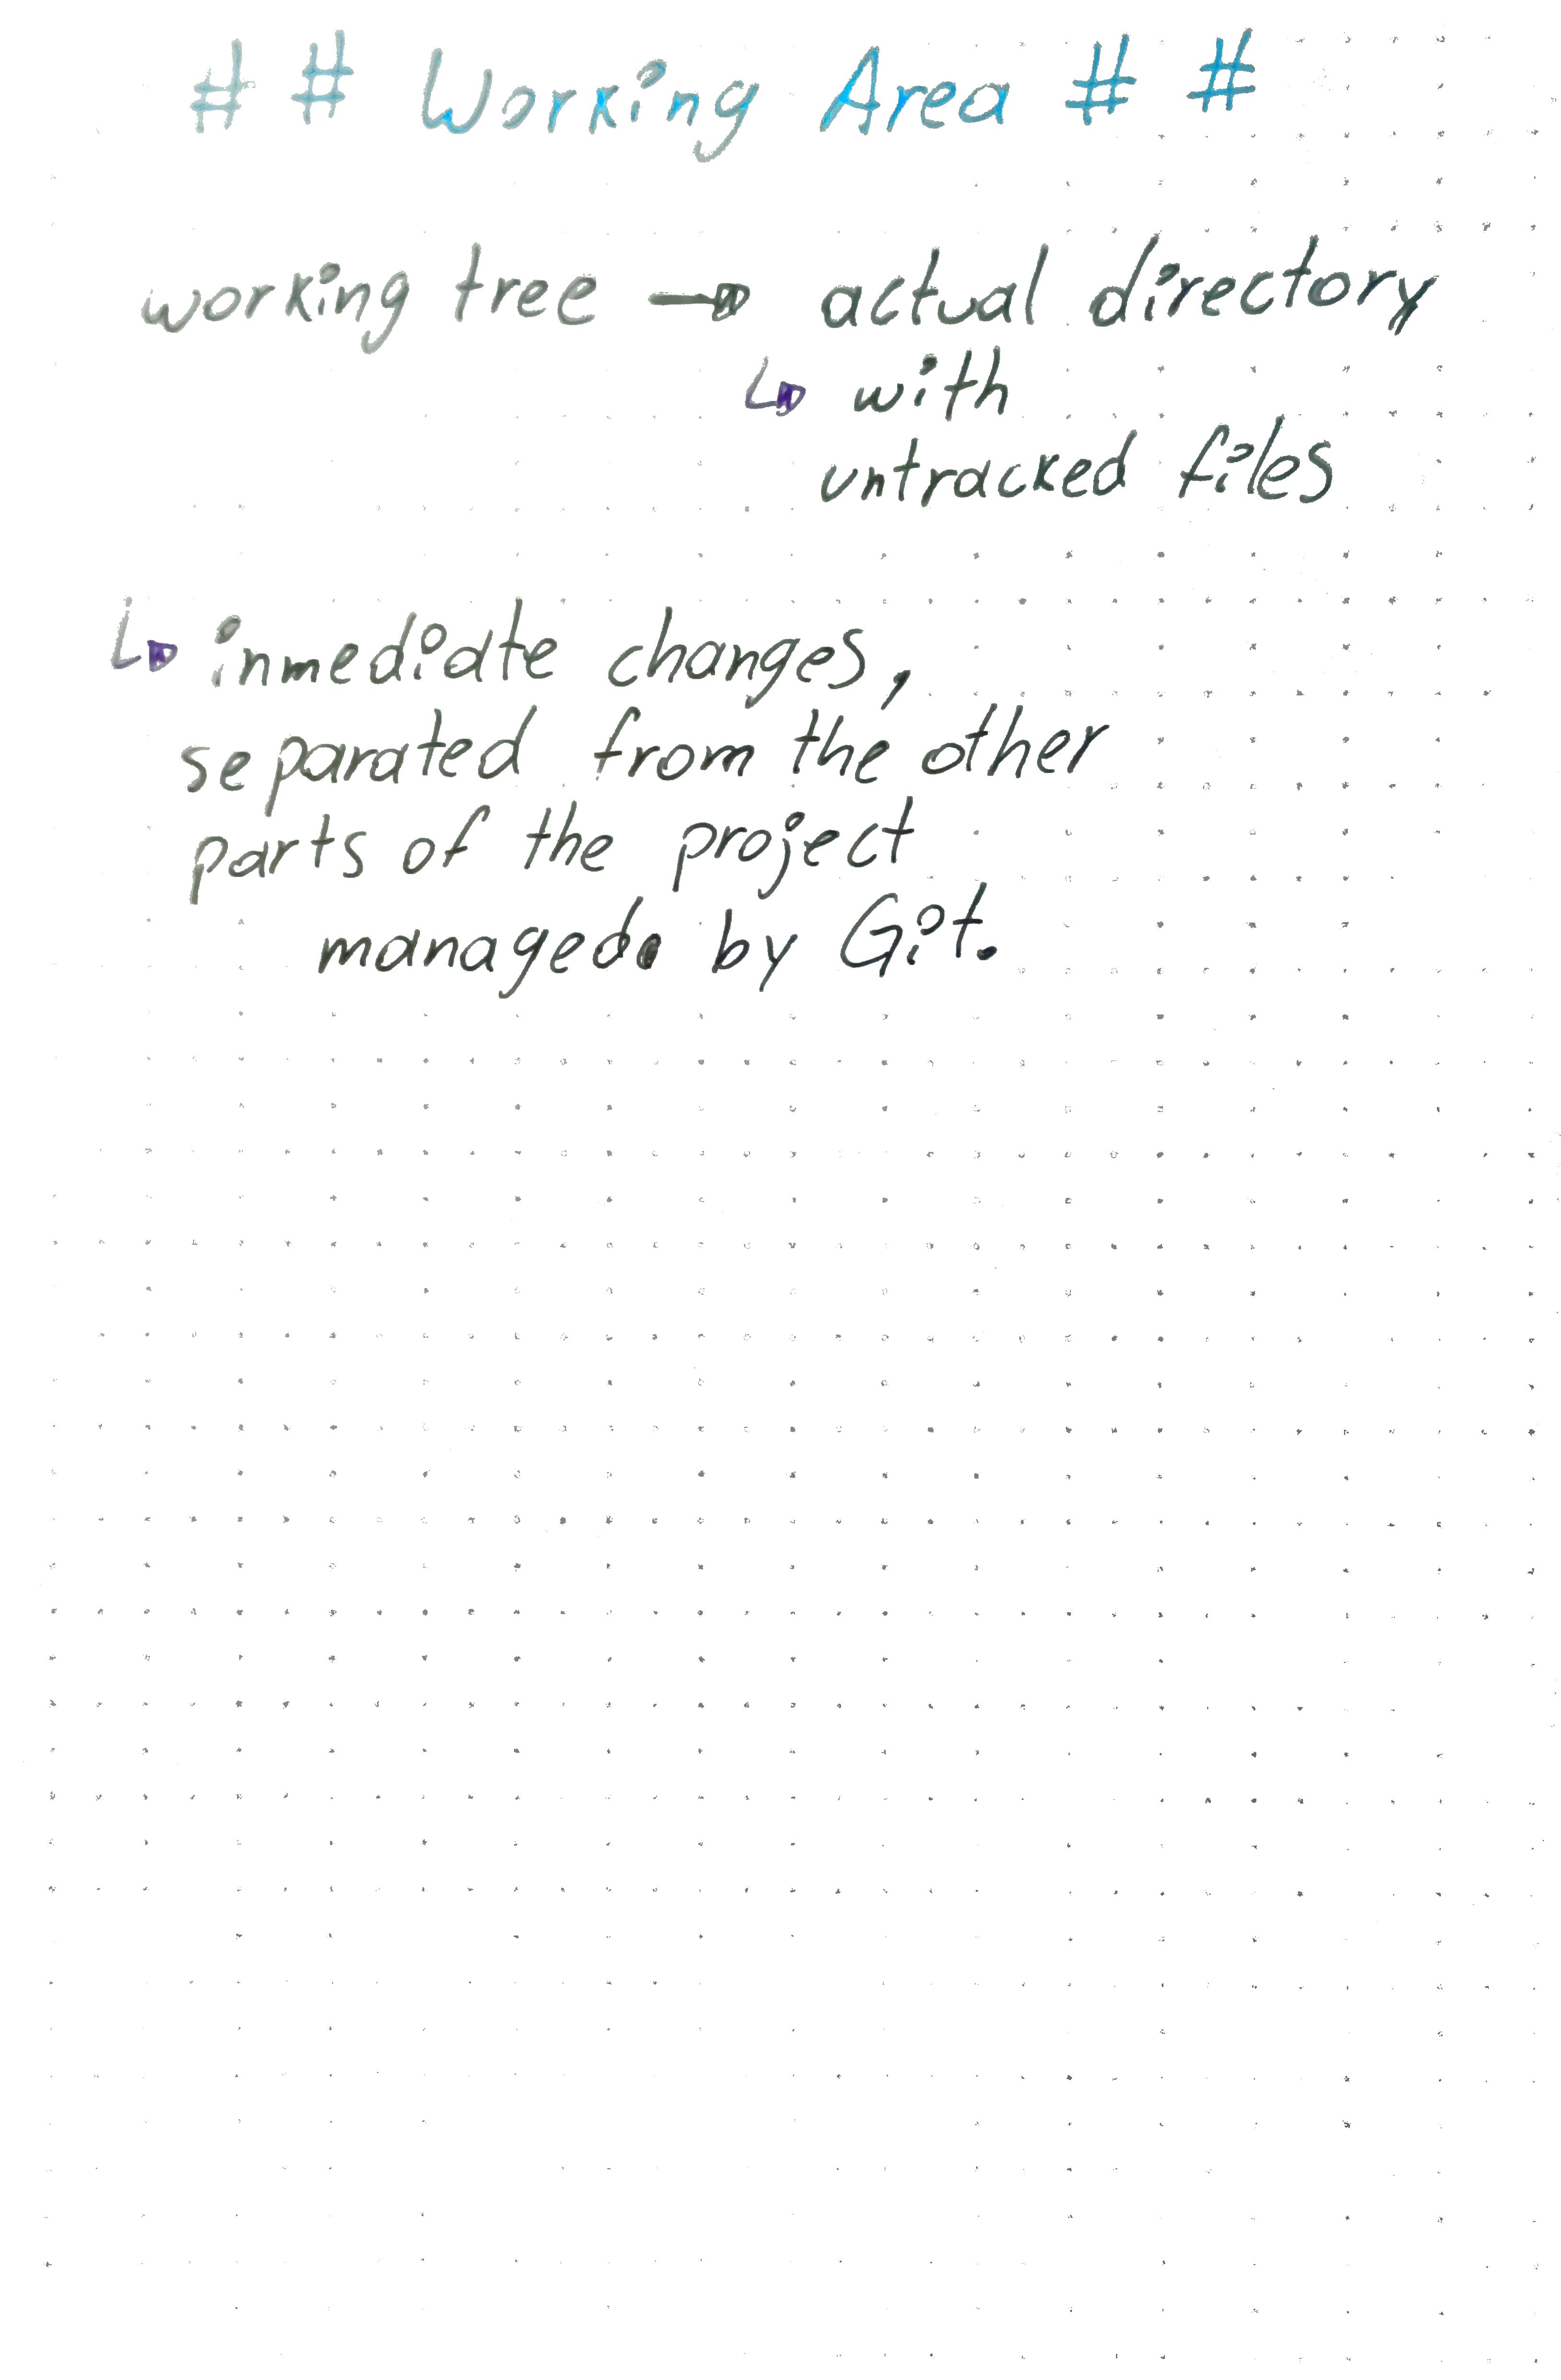 # # Working Area # #
working tree → actual directory
↳ with
untracked files
↳ inmediate changes,
separated from the other
parts of the project
managed by Git.